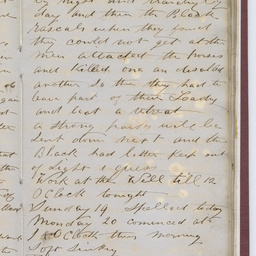 by night and
day and then the Black
Rascals when they found
they could not get at the
men attacked the horses
and Killed one an disabled
another So then they had to
leave part of their Loading
and beat a retreat
a strong party will be
sent down next and the
Black had better Keep out
of sight
Work at the Well till 12
O'Clock tonight
Sunday 19 Spelled today
Monday 20 comenced at
1 O'Clock this morning
Soft Sinking